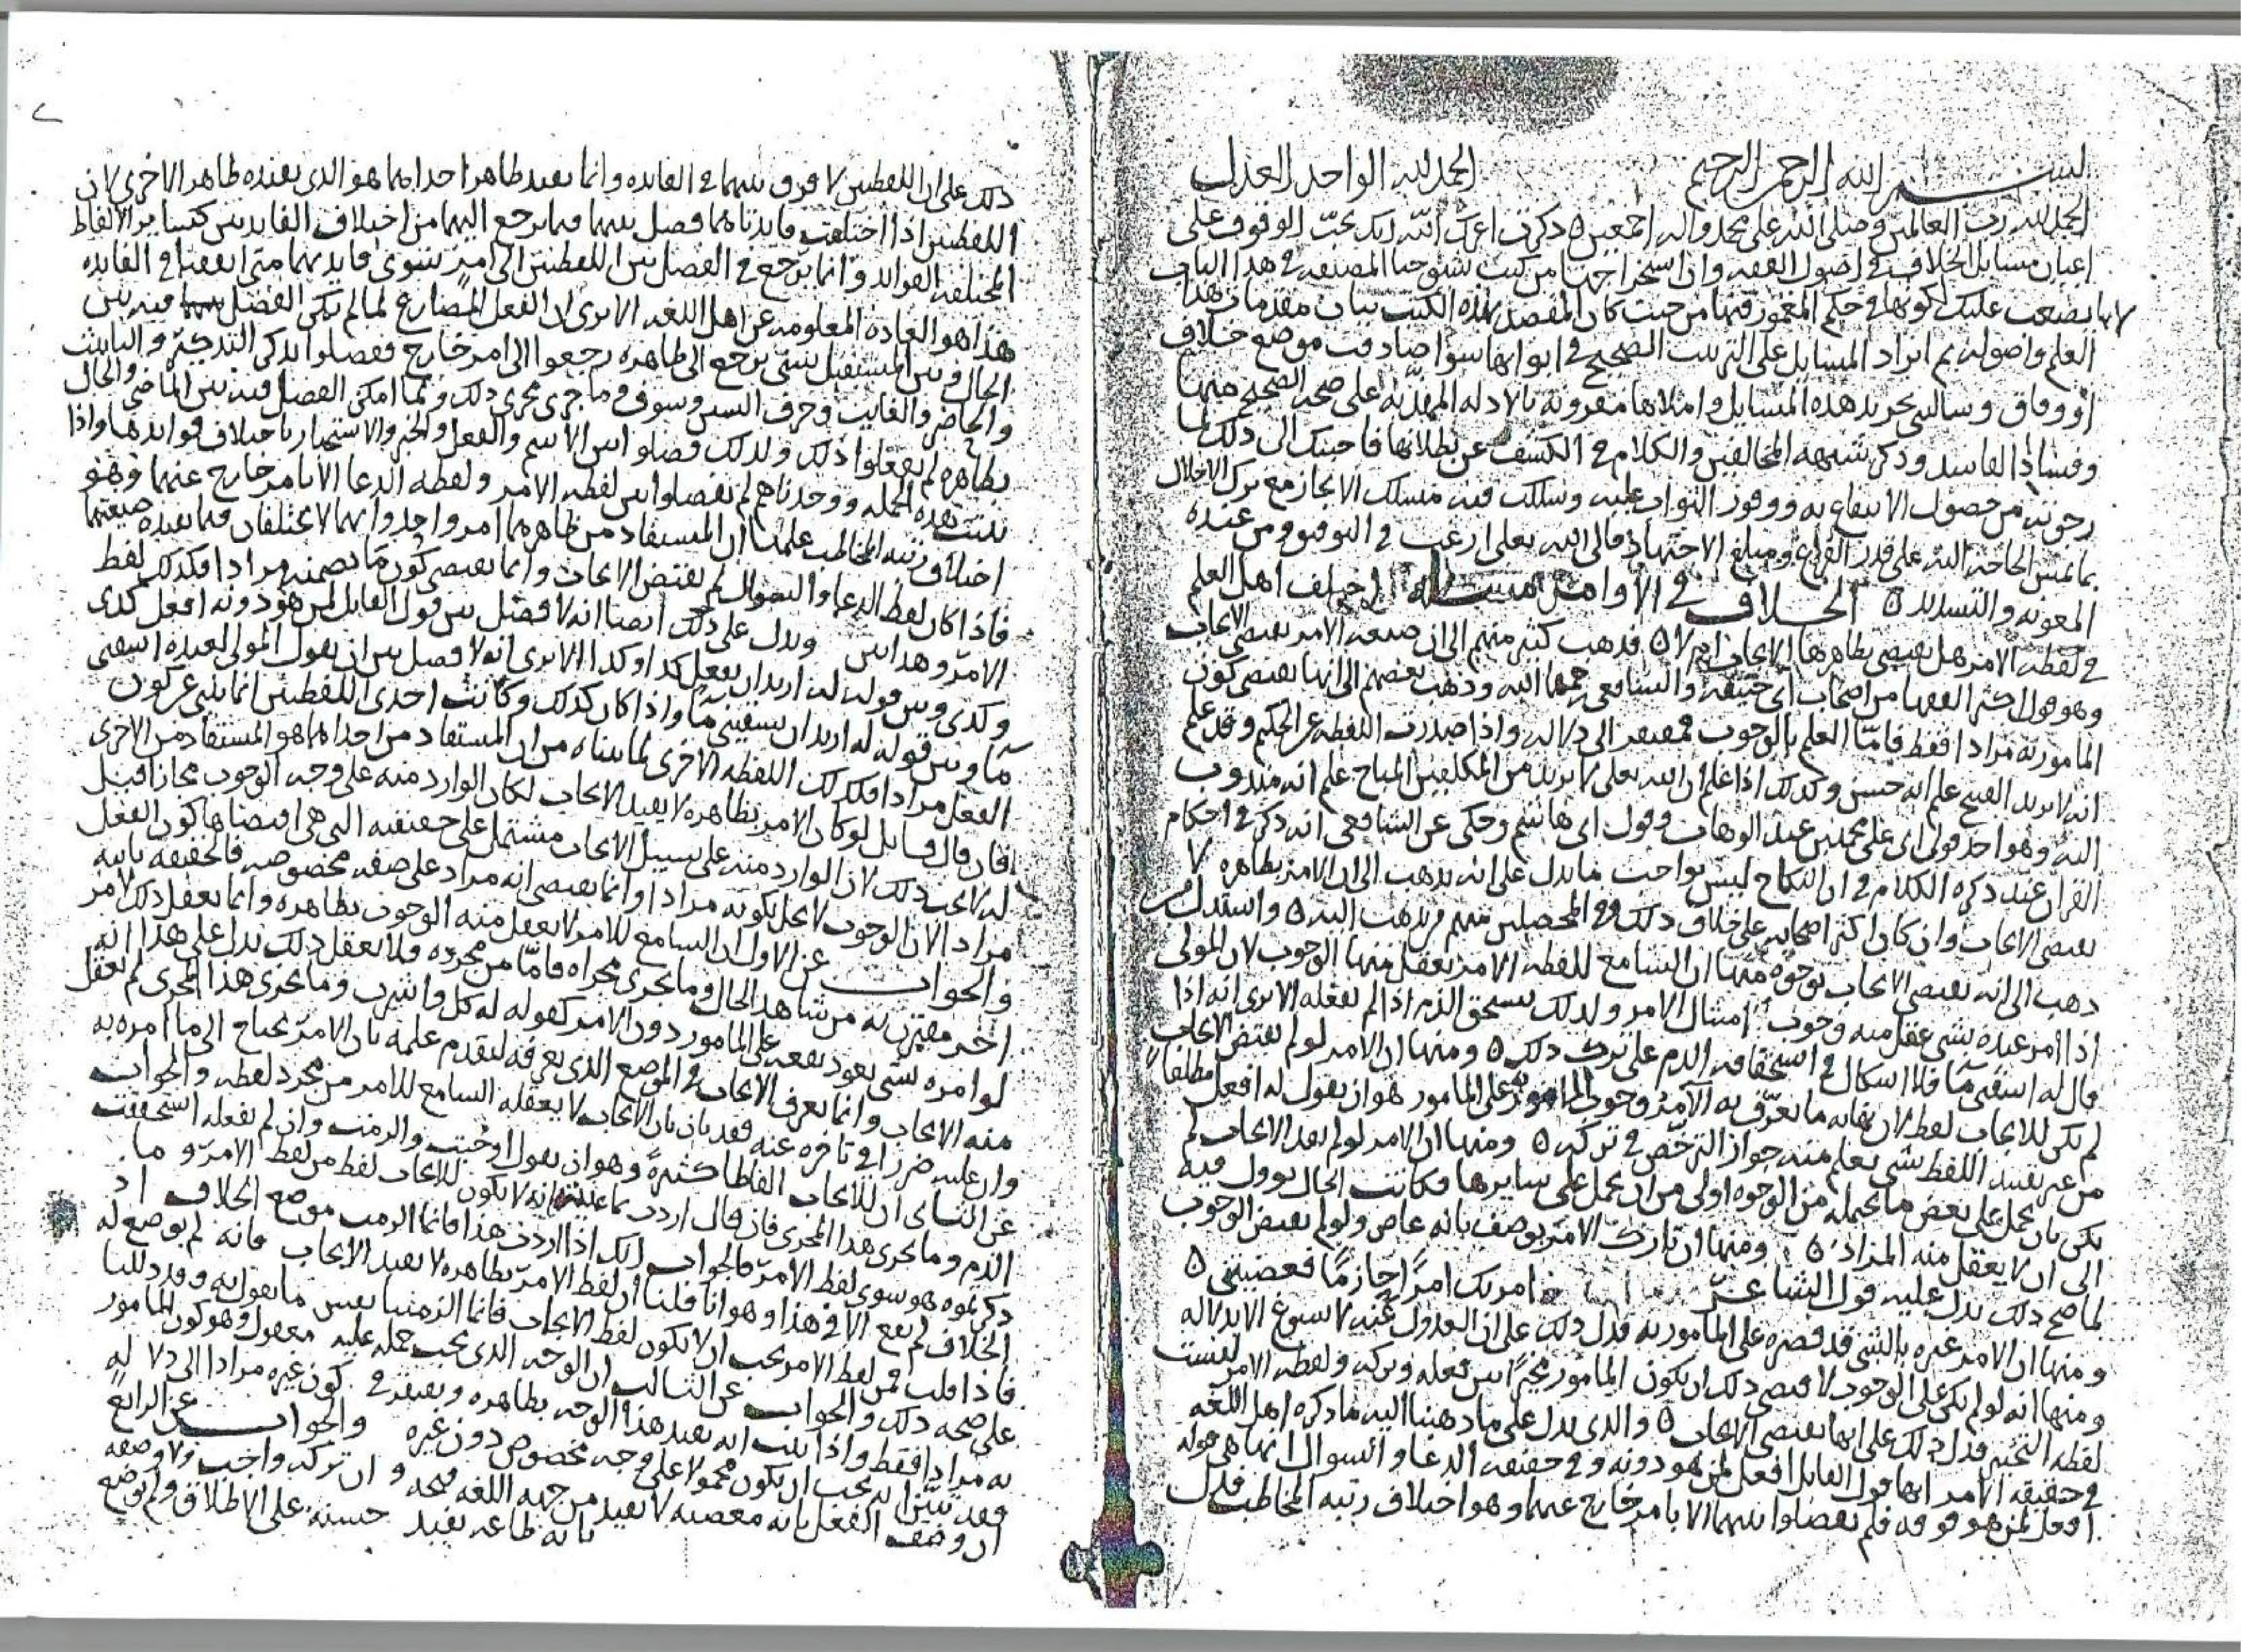 بسم الله الرحمن الرحيم الحمد لله الواحد العدل
الحمد لله رب العالمين وصلى الله على محمد واله اجمعين ذكرت اعزك الله انك تحب الوقوف على
اعيان مسايل الخلاف في اصول الفقه وان استخراجها من كتب شيوخنا المصنفه في هذا الباب
يصعب عليك لكونها في حكم المغمور فيها من حيث كان المقصد بهذه الكتب بيان مقدمات هذا
العلم واصوله ثم ايراد المسايل على الترتيب الصحيح في ابوابها سوا صادفت موضع خلاف
او وفاق وسالتني تجريد هذه المسايل وامثلاها مقرونه بالادله المهذبه على صحه الصحيح منها
وفساد الفاسد وذكر شبهه المخالفين والكلام في الكشف عن بطلانها فاجبتك الى ذلك لما
رجوته من حصول الانتفاع به ووفور الثواب عليه وسلكت فيه مسلك الايجاز مع ترك الاخلال
بما تمس الحاجه اليه على قدر الفراغ ومبلغ الاجتهاد فالى الله تعلى ارغب في التوفيق ومن عنده
المعونه والتسديد الخلاف في الاوامر مسئله اختلف اهل العلم
في لفظه الامر هل يقتضي بظاهرها الايجاب ام لا فذهب كثير منهم الى ان صيغه الامر يقتضي الايجاب
وهو قول اكثر الفقها من اصحاب ابي حنيفه والشافعي رحمهما الله وذهب بعضهم الى انها يقتضي كون
المامور به مرادا فقط فاما العلم بالوجوب فمفتقر الى دلاله واذا صدرت اللفظه عن الحكيم وقد علم
انه لا يريد القبيح علم انه حسن وكذلك اذا علم ان الله تعلى لا يريد من المكلفين المباح علم انه مندوب
اليه وهو احد قولي ابي علي محمد بن عبد الوهاب وقول ابي هاشم وحكي عن الشافعي انه ذكر في احكام
القران عند ذكره الكلام في ان النكاح ليس بواجب ما يدل على انه يذهب الى ان الامر بظاهره لا
يقتضي الايجاب وان كان اكثر اصحابه على خلاف ذلك وفي المحصلين منهم من يذهب اليه واستدل من
ذهب الى انه يقتضي الايجاب بوجوه منها ان السامع للفظه الامر يعقل منها الوجوب لان المولى
اذا امر عبده بشي عقل منه وجوب امتثال الامر ولذلك يستحق الذم اذا لم يفعله الا ترى انه اذا
قال له اسقني ما فلا اشكال في استحقاقه الذم على ترك ذلك ومنها ان الامر لو لم يقتض الايجاب
لم يكن للايجاب لفظ لان نهايه ما يعرف به الآمر وجوب المامور به على المامور هو ان يقول له افعل مطلقا
من غير تقييد اللفظ بشي يعلم منه جواز الترخص في تركه ومنها ان الامر لو لم يفد الايجاب لم
يكن بان يحمل على بعض ما يحتمله من الوجوه اولى من ان يحمل على سايرها فكانت الحال يوول فيه
الى ان لا يعقل منه المراد ومنها ان تارك الامر يوصف بانه عاص ولو لم يقتض الوجوب
لما صح ذلك يدل عليه قول الشاعر امرتك امرا جازما فعصيتني
ومنها ان الامر غيره بالشي قد قصره على المامور به فدل ذلك على ان العدول عنه لا يسوغ الا بدلاله
ومنها انه لو لم يكن على الوجوب لاقتضى ذلك ان يكون المامور مخيرا بين فعله وتركه ولفظه الامر ليست
لفظه التخيير فدل ذلك على انها تقتضي الايجاب والذي يدل على ما ذهبنا اليه ما ذكره اهل اللغه
في حقيقه الامر انها قول القايل افعل لمن هو دونه وفي حقيقه الدعا والسوال انها هي قوله
افعل لمن هو فوقه فلم يفصلوا بينهما الا بامر خارج عنهما وهو اختلاف رتبه المخاطب فدل
ذلك على ان اللفظين لا فرق بينهما في الفايده وانما يفيد ظاهر احداهما هو الذي يفيده ظاهر الاخرى لان
اللفظين اذا اختلفت فايدتاهما فصل بينهما فيما يرجع اليهما من اختلاف الفايدتين كساير الالفاظ
المختلفه الفوايد وانما يرجع في الفصل بين اللفظين الى امر سوى فايدتهما متى اتفقتا في الفايده
هذا هو العاده المعلومه عن اهل اللغه الا ترى ان الفعل المضارع لما لم يكن الفصل فيه بين
الحال وبين المستقبل بشي يرجع الى ظاهره رجعوا الى امر خارج ففصلوا بذكر التذكير والتانيث
والحاضر والغايب وحرف السين وسوف وما جرى مجرى ذلك ولما امكن الفصل فيه بين الماضي والحال
بظاهره لم يفعلوا ذلك ولذلك فصلوا بين الاسم والفعل والخبر والاستخبار باختلاف فوايدها واذا
ثبتت هذه الجمله ووجدناهم لم يفصلوا بين لفظه الامر ولفظه الدعا الا بامر خارج عنهما وهو
اختلاف رتبه المخاطب علمنا ان المستفاد من ظاهرهما امر واحد وانهما لا يختلفان فيما يفيده صيغتهما
فاذا كان لفظ الدعا والسوال لم يقتض الايجاب وانما يقتضي كون ما تضمنه مرادا فكذلك لفظ
الامر وهذا بين ويدل على ذلك ايضا انه لا فصل بين قول القايل لمن هو دونه افعل كذى
وكذى وبين قوله له اريد ان يفعل كذا وكذا الا ترى انه لا فصل بين ان يقول المولى لعبده اسقني
ما وبين قوله له اريد ان يسقيني ما واذا كان كذلك وكانت احدى اللفظين انما ينبي عن كون
الفعل مرادا فكذلك اللفظه الاخرى لما بيناه من ان المستفاد من احداهما هو المستفاد من الاخرى
فان قال قايل لو كان الامر بظاهره لا يفيد الايجاب لكان الوارد منه على وجه الوجوب مجازا قيل
له لا يجب ذلك لان الوارد منه على سبيل الايجاب مشتمل على حقيقته التي هي اقتضاها كون الفعل
مرادا لان الوجوب لا يخل بكونه مرادا وانما يقتضي انه مراد على صفه مخصوصه فالحقيقه ثابته
والجواب عن الاول ان السامع للامر لا يعقل منه الوجوب بظاهره وانما يعقل ذلك لامر
اخر مقترن به من شاهد الحال وما يجرى مجراه فاما من مجرده فلا يعقل ذلك يدل على هذا انه
لو امره بشي يعود نفعه على المامور دون الامر كقوله له كل واشرب وما يجرى هذا المجرى لم يعقل
منه الايجاب وانما يعرف الايجاب في الموضع الذي يعرفه لتقدم علمه بان الامر يحتاج الى ما امره به
وان عليه ضررا في تاخره عنه فقد بان بان الايجاب لا يعقله السامع للامر من مجرد لفظه والجواب
عن الثاني ان للايجاب الفاظا كثيرة وهو ان يقول اوجبت والزمت وان لم تفعله استحققت
الذم وما يجرى هذا المجرى فان قال اردت بما انه لا يكون للايجاب لفظ من لفظ الامر وما
ذكرتموه هو سوى لفظ الامر فالجواب انك اذا اردت هذا فانما الزمت موضع الخلاف اذ
الخلاف لم يقع الا في هذا وهو انا قلنا ان لفظ الامر بظاهره لا يفيد الايجاب فانه لم يوضع له
فاذا قلت فمن لفظ الامر يجب ان لا يكون لفظ الايجاب فانما الزمتنا نفس ما نقول به وقد دللنا
على صحه ذلك والجواب عن الثالث ان الوجه الذي يجب حمله عليه معقول وهو كون المامور
به مرادا فقط واذا ثبت انه يفيد هذا الوجه بظاهره ويفتقر في كون غيره مرادا الى دلاله
فقد تبين انه يجب ان يكون محمولا على وجه مخصوص دون غيره والجواب عن الرابع
ان وصف الفعل بانه معصيه لا يفيد من جهه اللغه قبحه وان تركه واجب ولا وصفه
بانه طاعه يفيد حسنه على الاطلاق ولم يوضع